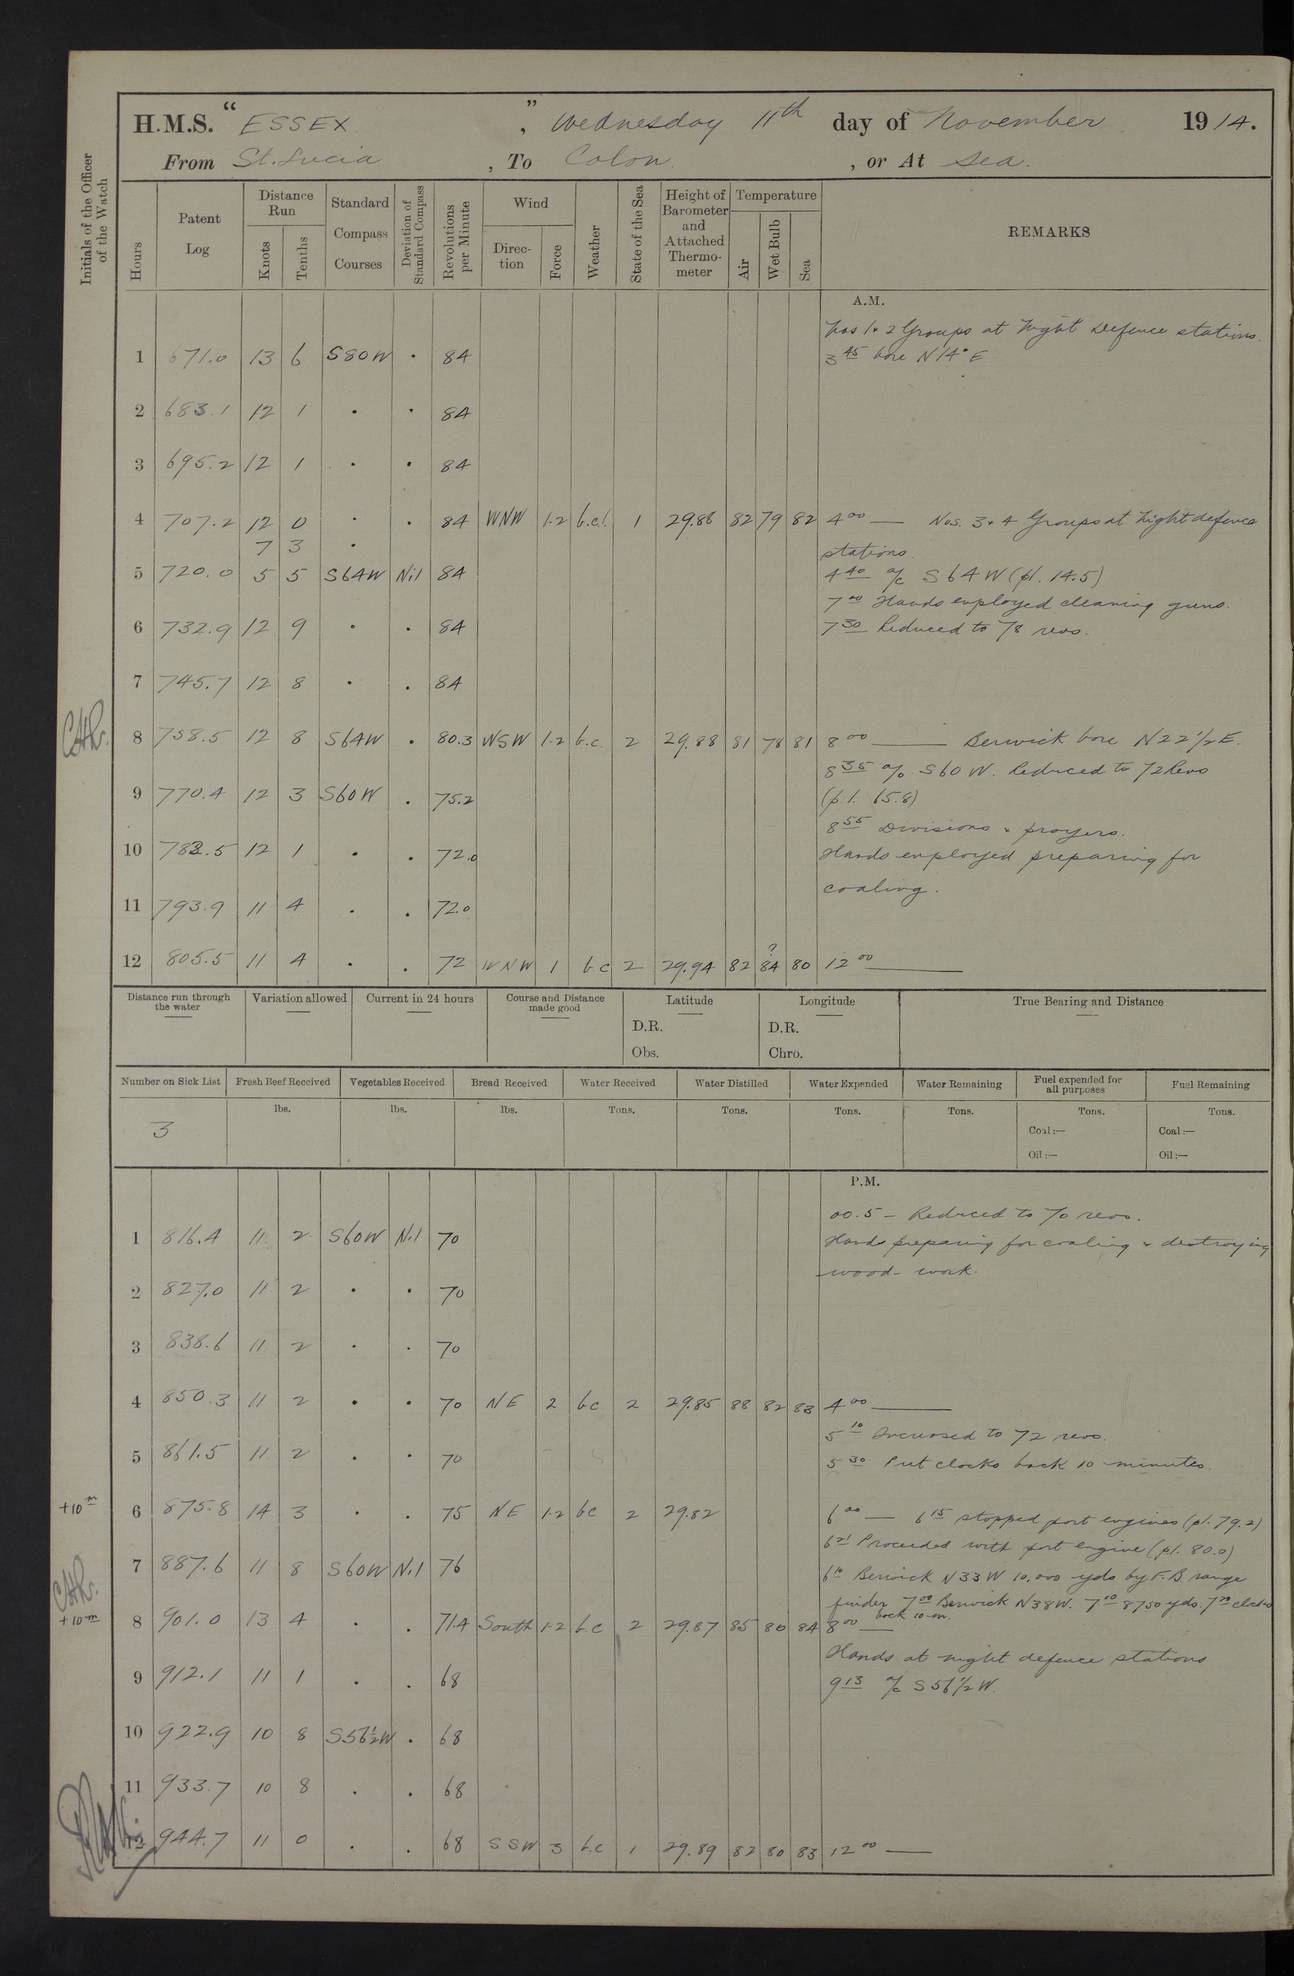 H.M.S. " ESSEX ", Wednesday 11th day of November 1914.
From St. Lucia, To Colon, or At Sea.
Initials of the Officer of the Watch
Hours
Patent Log
Distance Run
Knots
Tenths
Standard Compass Courses
Deviation of Standard Compass
Revolutions per Minute
Wind
Direction
Force
Weather
State of the Sea
Height of Barometer and Attached Thermometer
Temperature
Air
Wet Bulb
Sea
REMARKS
A.M.
Nos 1 & 2 Groups at Night Defence stations.
1 671.0 13 6 S80W . 84 3 45 bore N14°E
2 683.1 12 1 . . 84
3 695.2 12 1 . . 84
4 707.2 12 0 . . 84 WNW 1-2 b.c.l. 1 29.88 82 79 82 4 00 — Nos. 3 & 4 Groups at Night defence
7 3 . stations.
5 720.0 5 5 S64W Nil 84 4 40 a/c S64W (pl. 14.5)
7 00 Hands employed cleaning guns.
6 732.9 12 9 . . 84 7 30 Reduced to 78 revs.
7 745.7 12 8 . . 84
8 758.5 12 8 S64W . 80.3 WSW 1-2 b.c. 2 29.88 81 78 81 8 00 — Berwick bore N22½E.
8 35 a/c S60W. Reduced to 72 Revs
9 770.4 12 3 S60W . 75.2 (p.l. 65.8)
8 55 Divisions & prayers.
10 782.5 12 1 . . 72.0 Hands employed preparing for
coaling.
11 793.9 11 4 . . 72.0
?
12 805.5 11 4 . . 72 WNW 1 b c 2 29.94 82 84 80 12 00 —
Distance run through the water
Variation allowed
Current in 24 hours
Course and Distance made good
Latitude
D.R.
Obs.
Longitude
D.R.
Chro.
True Bearing and Distance
Number on Sick List
Fresh Beef Received
Vegetables Received
Bread Received
Water Received
Water Distilled
Water Expended
Water Remaining
Fuel expended for all purposes
Fuel Remaining
lbs. lbs. lbs. Tons. Tons. Tons. Tons. Tons. Tons.
3
Coal:— Coal:—
Oil:— Oil:—
P.M.
00.5 – Reduced to 70 revs.
1 816.4 11 2 S60W Nil 70 Hands preparing for coaling & destroying
wood-work.
2 827.0 11 2 . . 70
3 838.6 11 2 . . 70
4 850.3 11 2 . . 70 NE 2 bc 2 29.85 88 82 83 4 00 —
5 10 Increased to 72 revs.
5 861.5 11 2 . . 70 5 30 Put clocks back 10 minutes.
+10 m 6 875.8 14 3 . . 75 NE 1-2 bc 2 29.82 6 00 — 6 15 stopped port engines (pl. 79.2)
6 21 Proceeded with port engine (pl. 80.0)
7 887.6 11 8 S60W Nil 76 Berwick N33W 10,000 yds by F.B. range
finder 7 00 Berwick N38W. 7 10 8750 yds. clocks
back 10 m.
+10 m 8 901.0 13 4 . . 71.4 South 1-2 b.c 2 29.87 85 80 84 8 00 —
Hands at night defence stations
9 912.1 11 1 . . 68 9 13 a/c S56½W.
10 922.9 10 8 S56½W . 68
11 933.7 10 8 . . 68
12 944.7 11 0 . . 68 SSW 3 b.c 1 29.89 82 80 83 12 00 —